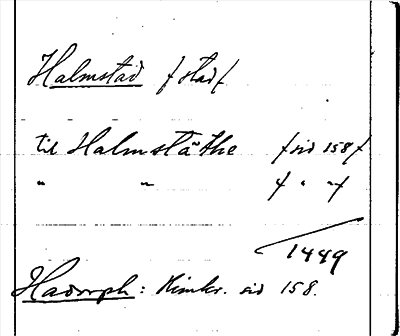 Halmstad / stad /
til Halmstäthe / sid 158 /
" " / " " /
1449
Hadorph: Rimkr. sid 158.